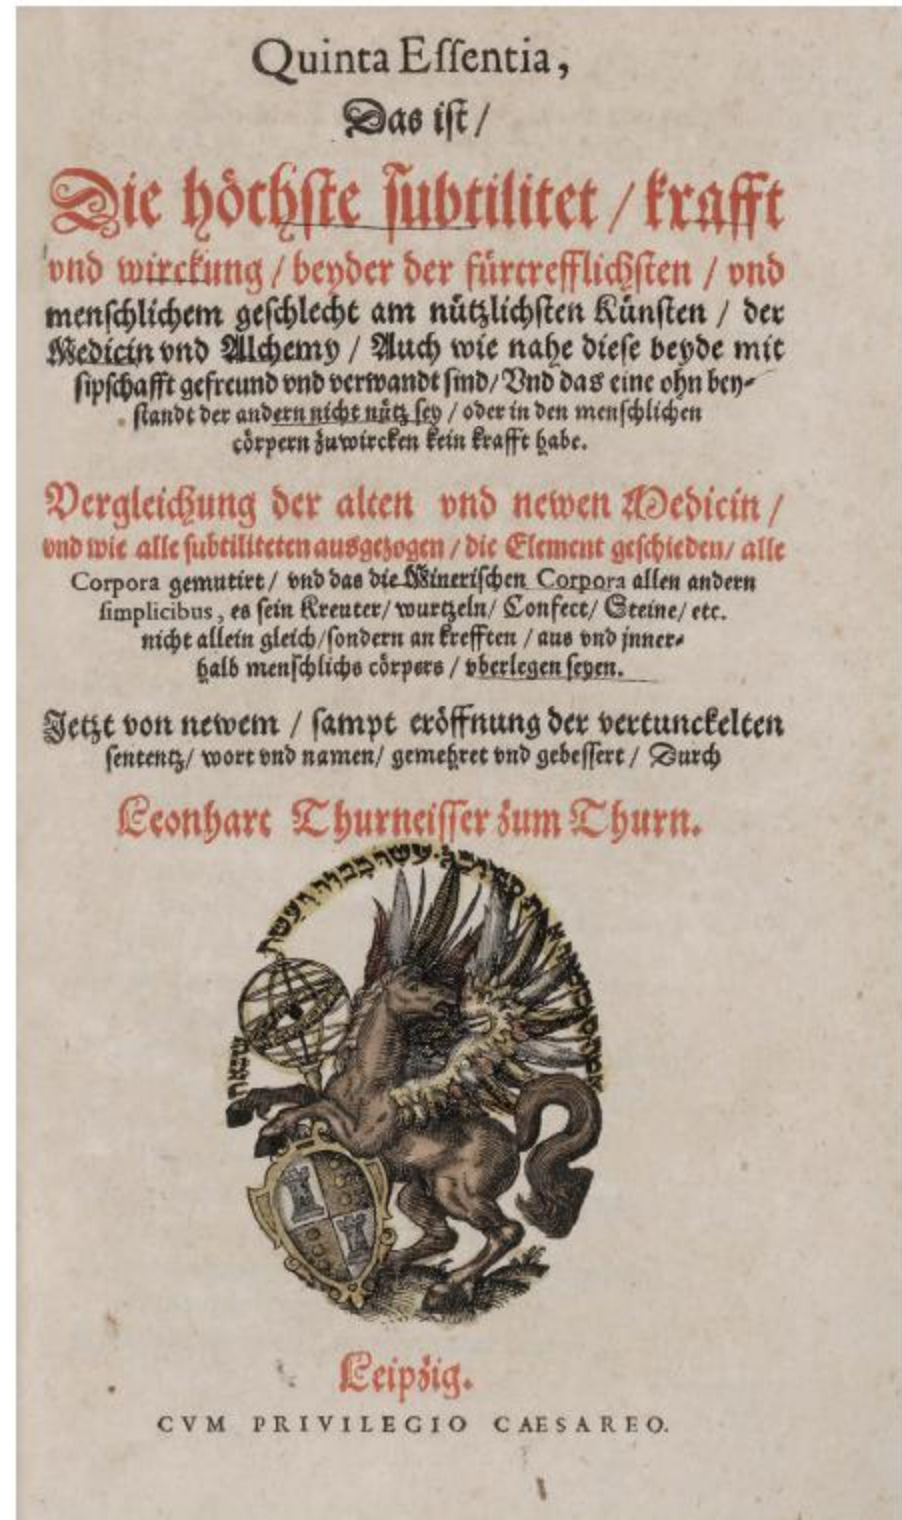 Quinta Eſſentia,
Das iſt /
Die höchſte ſubtilitet / krafft
vnd wirckung / beyder der fürtrefflichſten / vnd
menſchlichem geſchlecht am nützlichſten Künſten / der
Medicin vnd Alchemy / Auch wie nahe dieſe beyde mit
ſipſchafft gefreund vnd verwandt ſind / Vnd das eine ohn bey-
ſtandt der andern nicht nütz ſey / oder in den menſchlichen
cörpern zuwircken kein krafft habe.
Vergleichung der alten vnd newen Medicin /
vnd wie alle ſubtiliteten ausgezogen / die Element geſchieden / alle
Corpora gemutirt / vnd das die Mineriſchen Corpora allen andern
ſimplicibus, es ſein Kreuter / wurtzeln / Confect / Steine / etc.
nicht allein gleich / ſondern an krefften / aus vnd jnner-
halb menſchlichs cörpers / vberlegen ſeyen.
Jetzt von newem / ſampt eröffnung der vertunckelten
ſententz / wort vnd namen / gemehret vnd gebeſſert / Durch
Leonhart Thurneiſſer zum Thurn.
Leipzig.
CVM PRIVILEGIO CAESAREO.